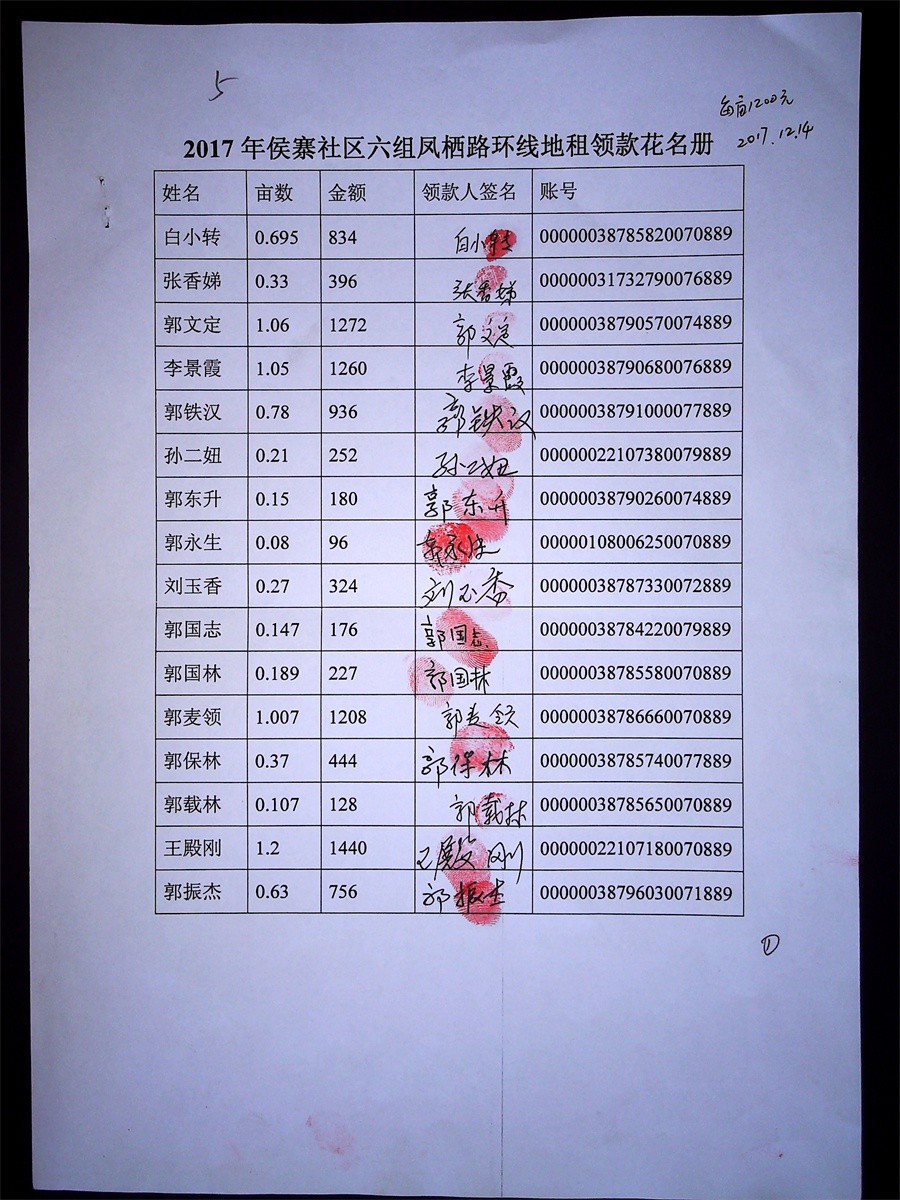 5
每亩1200元
2017.12.14
2017 年侯寨社区六组凤栖路环线地租领款花名册
姓名 亩数 金额 领款人签名 账号
白小转 0.695 834 白小转 00000038785820070889
张香娣 0.33 396 张香娣 00000031732790076889
郭文定 1.06 1272 郭文定 00000038790570074889
李景霞 1.05 1260 李景霞 00000038790680076889
郭铁汉 0.78 936 郭铁汉 00000038791000077889
孙二妞 0.21 252 孙二妞 00000022107380079889
郭东升 0.15 180 郭东升 00000038790260074889
郭永生 0.08 96 郭永生 00000108006250070889
刘玉香 0.27 324 刘玉香 00000038787330072889
郭国志 0.147 176 郭国志 00000038784220079889
郭国林 0.189 227 郭国林 00000038785580070889
郭麦领 1.007 1208 郭麦领 00000038786660070889
郭保林 0.37 444 郭保林 00000038785740077889
郭载林 0.107 128 郭载林 00000038785650070889
王殿刚 1.2 1440 王殿刚 00000022107180070889
郭振杰 0.63 756 郭振杰 00000038796030071889
①